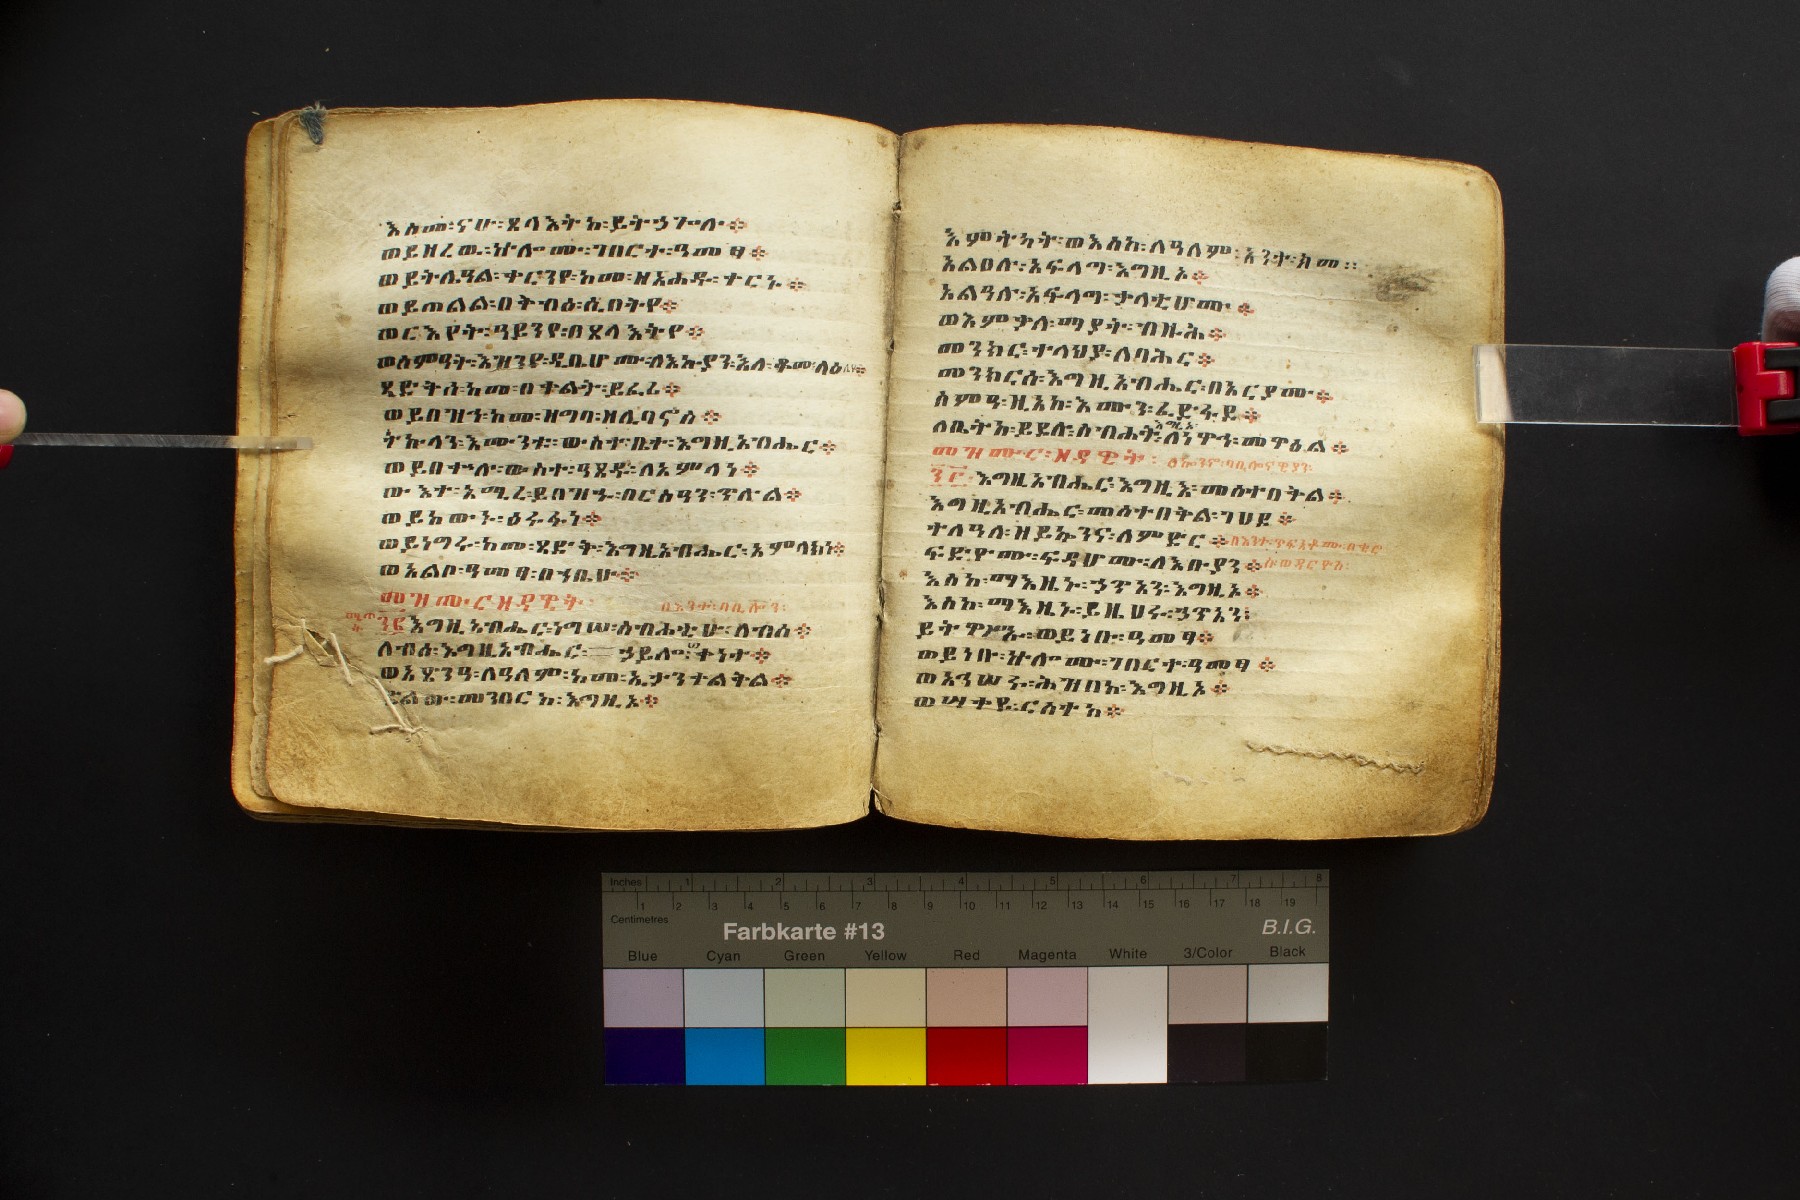 እስመ፡ናሁ፡ጸላእትከ፡ይትኃጐሉ፨
ወይዘረዉ፡ኵሎሙ፡ገበርተ፡ዓመፃ፨
ወይትሌዓል፡ቀርንየ፡ከመ፡ዘአሐዱ፡ቀርኑ፨
ወይጠልል፡በቅብዕ፡ሲበትየ፨
ወርእየት፡ዓይንየ፡በጸላእትየ፨
ወሰምዓት፡እዝንየ፡ዲቤሆሙ፡ለእኩያን፡እለ፡ቆሙ፡ላዕሌየ፨
ጻድቅሰ፡ከመ፡በቀልት፡ይፈሪ፨
ወይበዝኅ፡ከመ፡ዘግባ፡ዘሊባኖስ፨
ትኩላን፡እሙንቱ፡ውስተ፡ቤተ፡እግዚአብሔር፨
ወይበቍሉ፡ውስተ፡ዓጸዱ፡ለአምላክነ፨
ውእተ፡አሚረ፡ይበዝኁ፡በርስዓን፡ጥሉል፨
ወይከውኑ፡ዕሩፋነ፨
ወይነግሩ፡ከመ፡ጻድቅ፡እግዚአብሔር፡አምላክነ፨
ወአልቦ፡ዓመፃ፡በኀቤሁ፨
መዝሙር፡ዘዳዊት፡ በእንተ፡ባቢሎን፡
፺፪ እግዚአብሔር፡ነግሠ፡ስብሐቲሁ፡ለብሰ፨
ለብሰ፡እግዚአብሔር፡ኃይሎ፡ወቀነተ፨
ወአጽንዓ፡ለዓለም፡ከመ፡ኢታንቀልቅል፨
ድልው፡መንበርከ፡እግዚኦ፨
እምትካት፡ወእስከ፡ለዓለም፡አንተ፡ክመ፡፡
አልዐሉ፡አፍላግ፡እግዚኦ፨
አልዓሉ፡አፍላግ፡ቃላቲሆሙ፨
ወእምቃለ፡ማያት፡ብዙኅ፨
መንክር፡ተላህያ፡ለባሕር፨
መንክርሰ፡እግዚአብሔር፡በአርያሙ፨
ስምዓ፡ዚአከ፡እሙን፡ፈድፋደ፨
ለቤትከ፡ይደሉ፡ስብሐት፡እግዚኦ፡ለነዋኅ፡መዋዕል፨
መዝሙር፡ዘዳዊት፡
፺፫ እግዚአብሔር፡እግዚአ፡መስተበቅል፨
እግዚአብሔር፡መስተበቅል፡ገሀደ፨
ተለዓለ፡ዘይኴንና፡ለምድር፨
ፍድዮሙ፡ፍዳሆሙ፡ለእቡያን፨
እስከ፡ማእዜኑ፡ኃጥአን፡እግዚኦ፨
እስከ፡ማእዜኑ፡ይዜሀሩ፡ኃጥአን፡
ይትዋሥኡ፡ወይነቡ፡ዓመፃ፨
ወይነቡ፡ኵሎሙ፡ገበርተ፡ዓመፃ፨
ወአኅሠሩ፡ሕዝበከ፡እግዚኦ፨
ወሣቀዩ፡ርስተከ፨
Inches 1 2 3 4 5 6 7 8
1 2 3 4 5 6 7 8 9 10 11 12 13 14 15 16 17 18 19
Centimetres
Farbkarte #13 B.I.G.
Blue Cyan Green Yellow Red Magenta White 3/Color Black